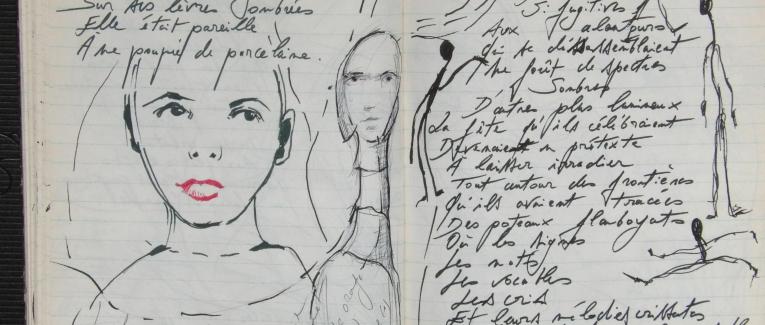 Sur ses lèvres Sombrées
Elle était pareille
A une poupée de porcelaine.
Si fugitives
Aux alentours
Qui se
Une forêt de spectres
Sombres
D'autres plus lumineux
La fête qu'ils célébraient
Devenait un prétexte
A laisser irradier
Tout autour des frontières
Qu'ils avaient tracées
Des poteaux flamboyants
Où les signes
Les mots
Les vocables
Les cris
Et leurs mélodies